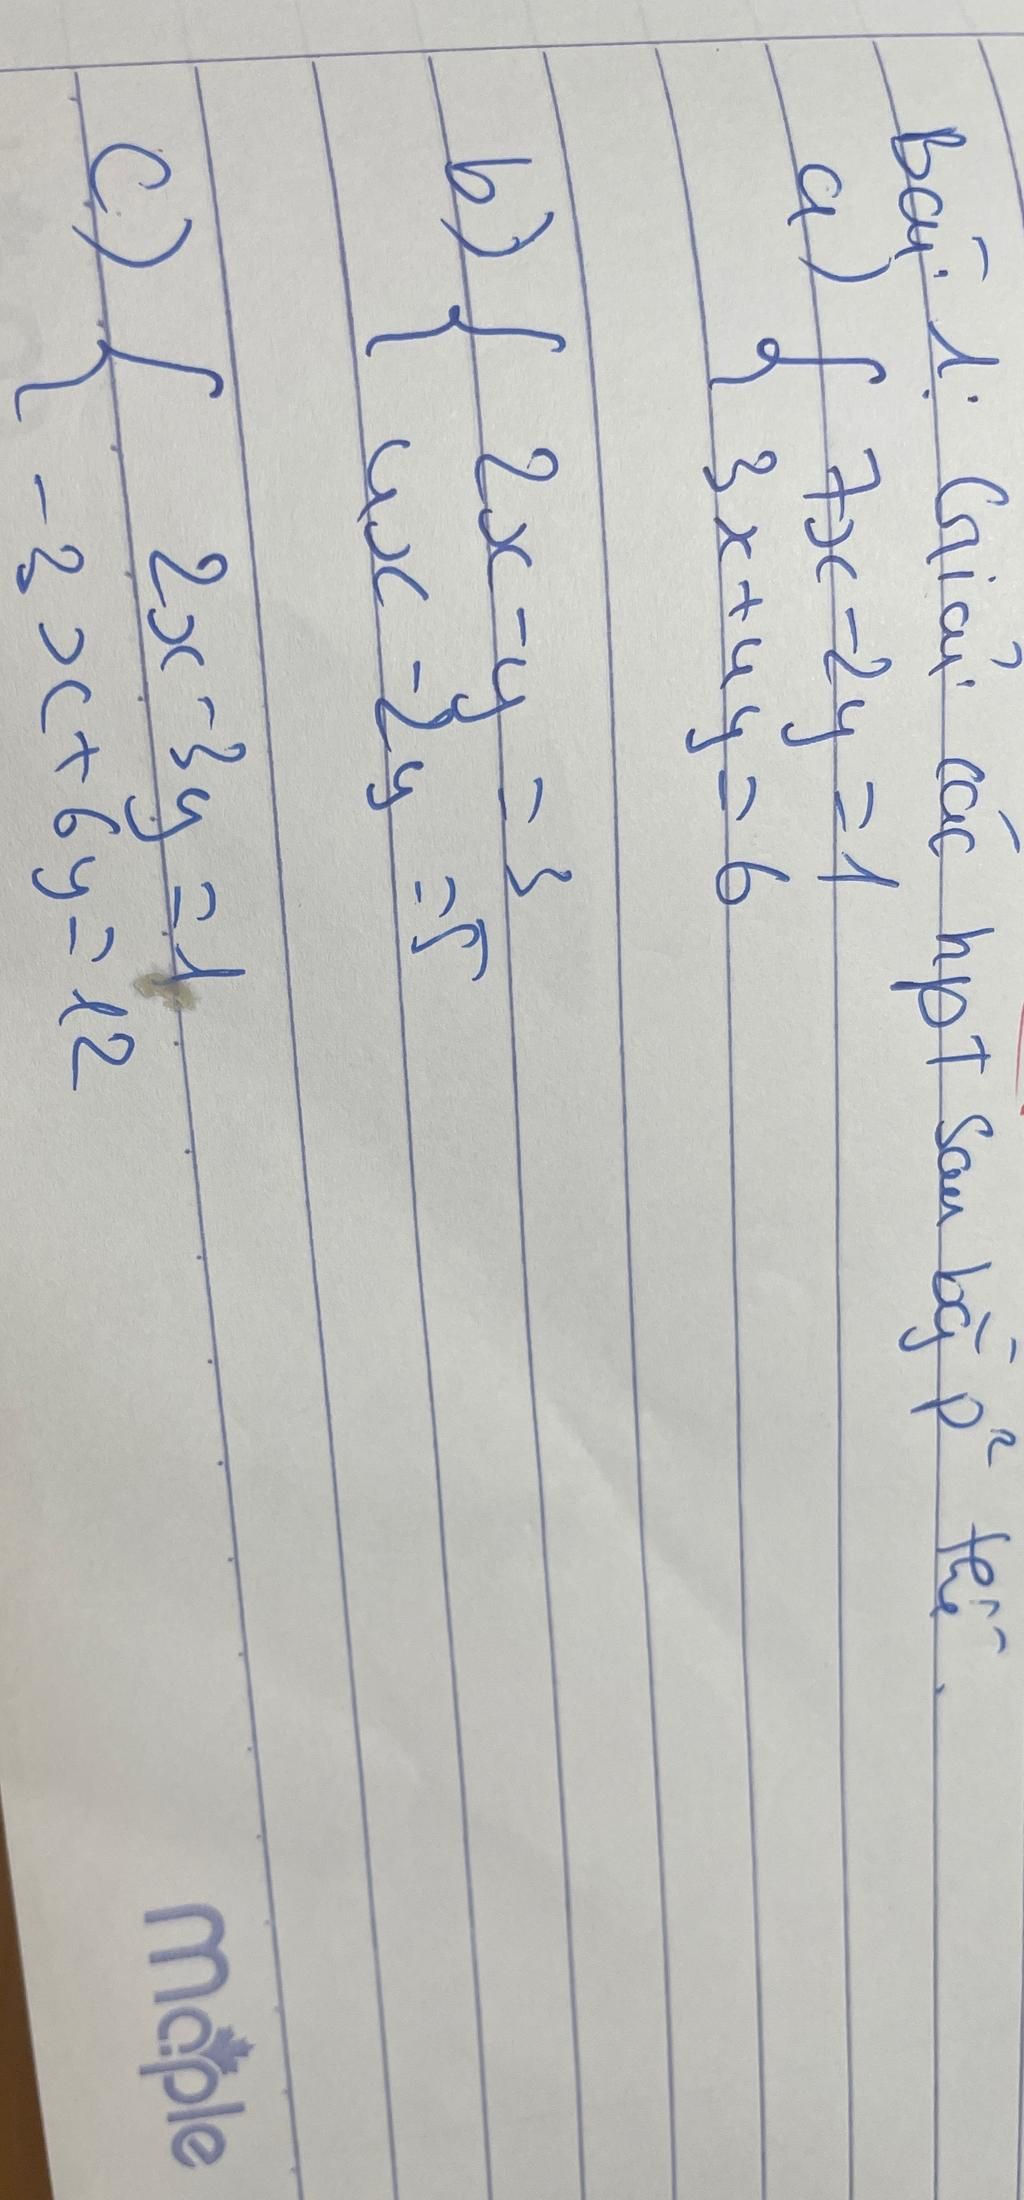 Bài 1: Giải các hpt sau bằg p² thế.
a) { 7x - 2y = 1
3x + 4y = 6
b) { 2x - y = 3
4x - 2y = 5
c) { 2x - 3y = 1
-3x + 6y = 12
maple